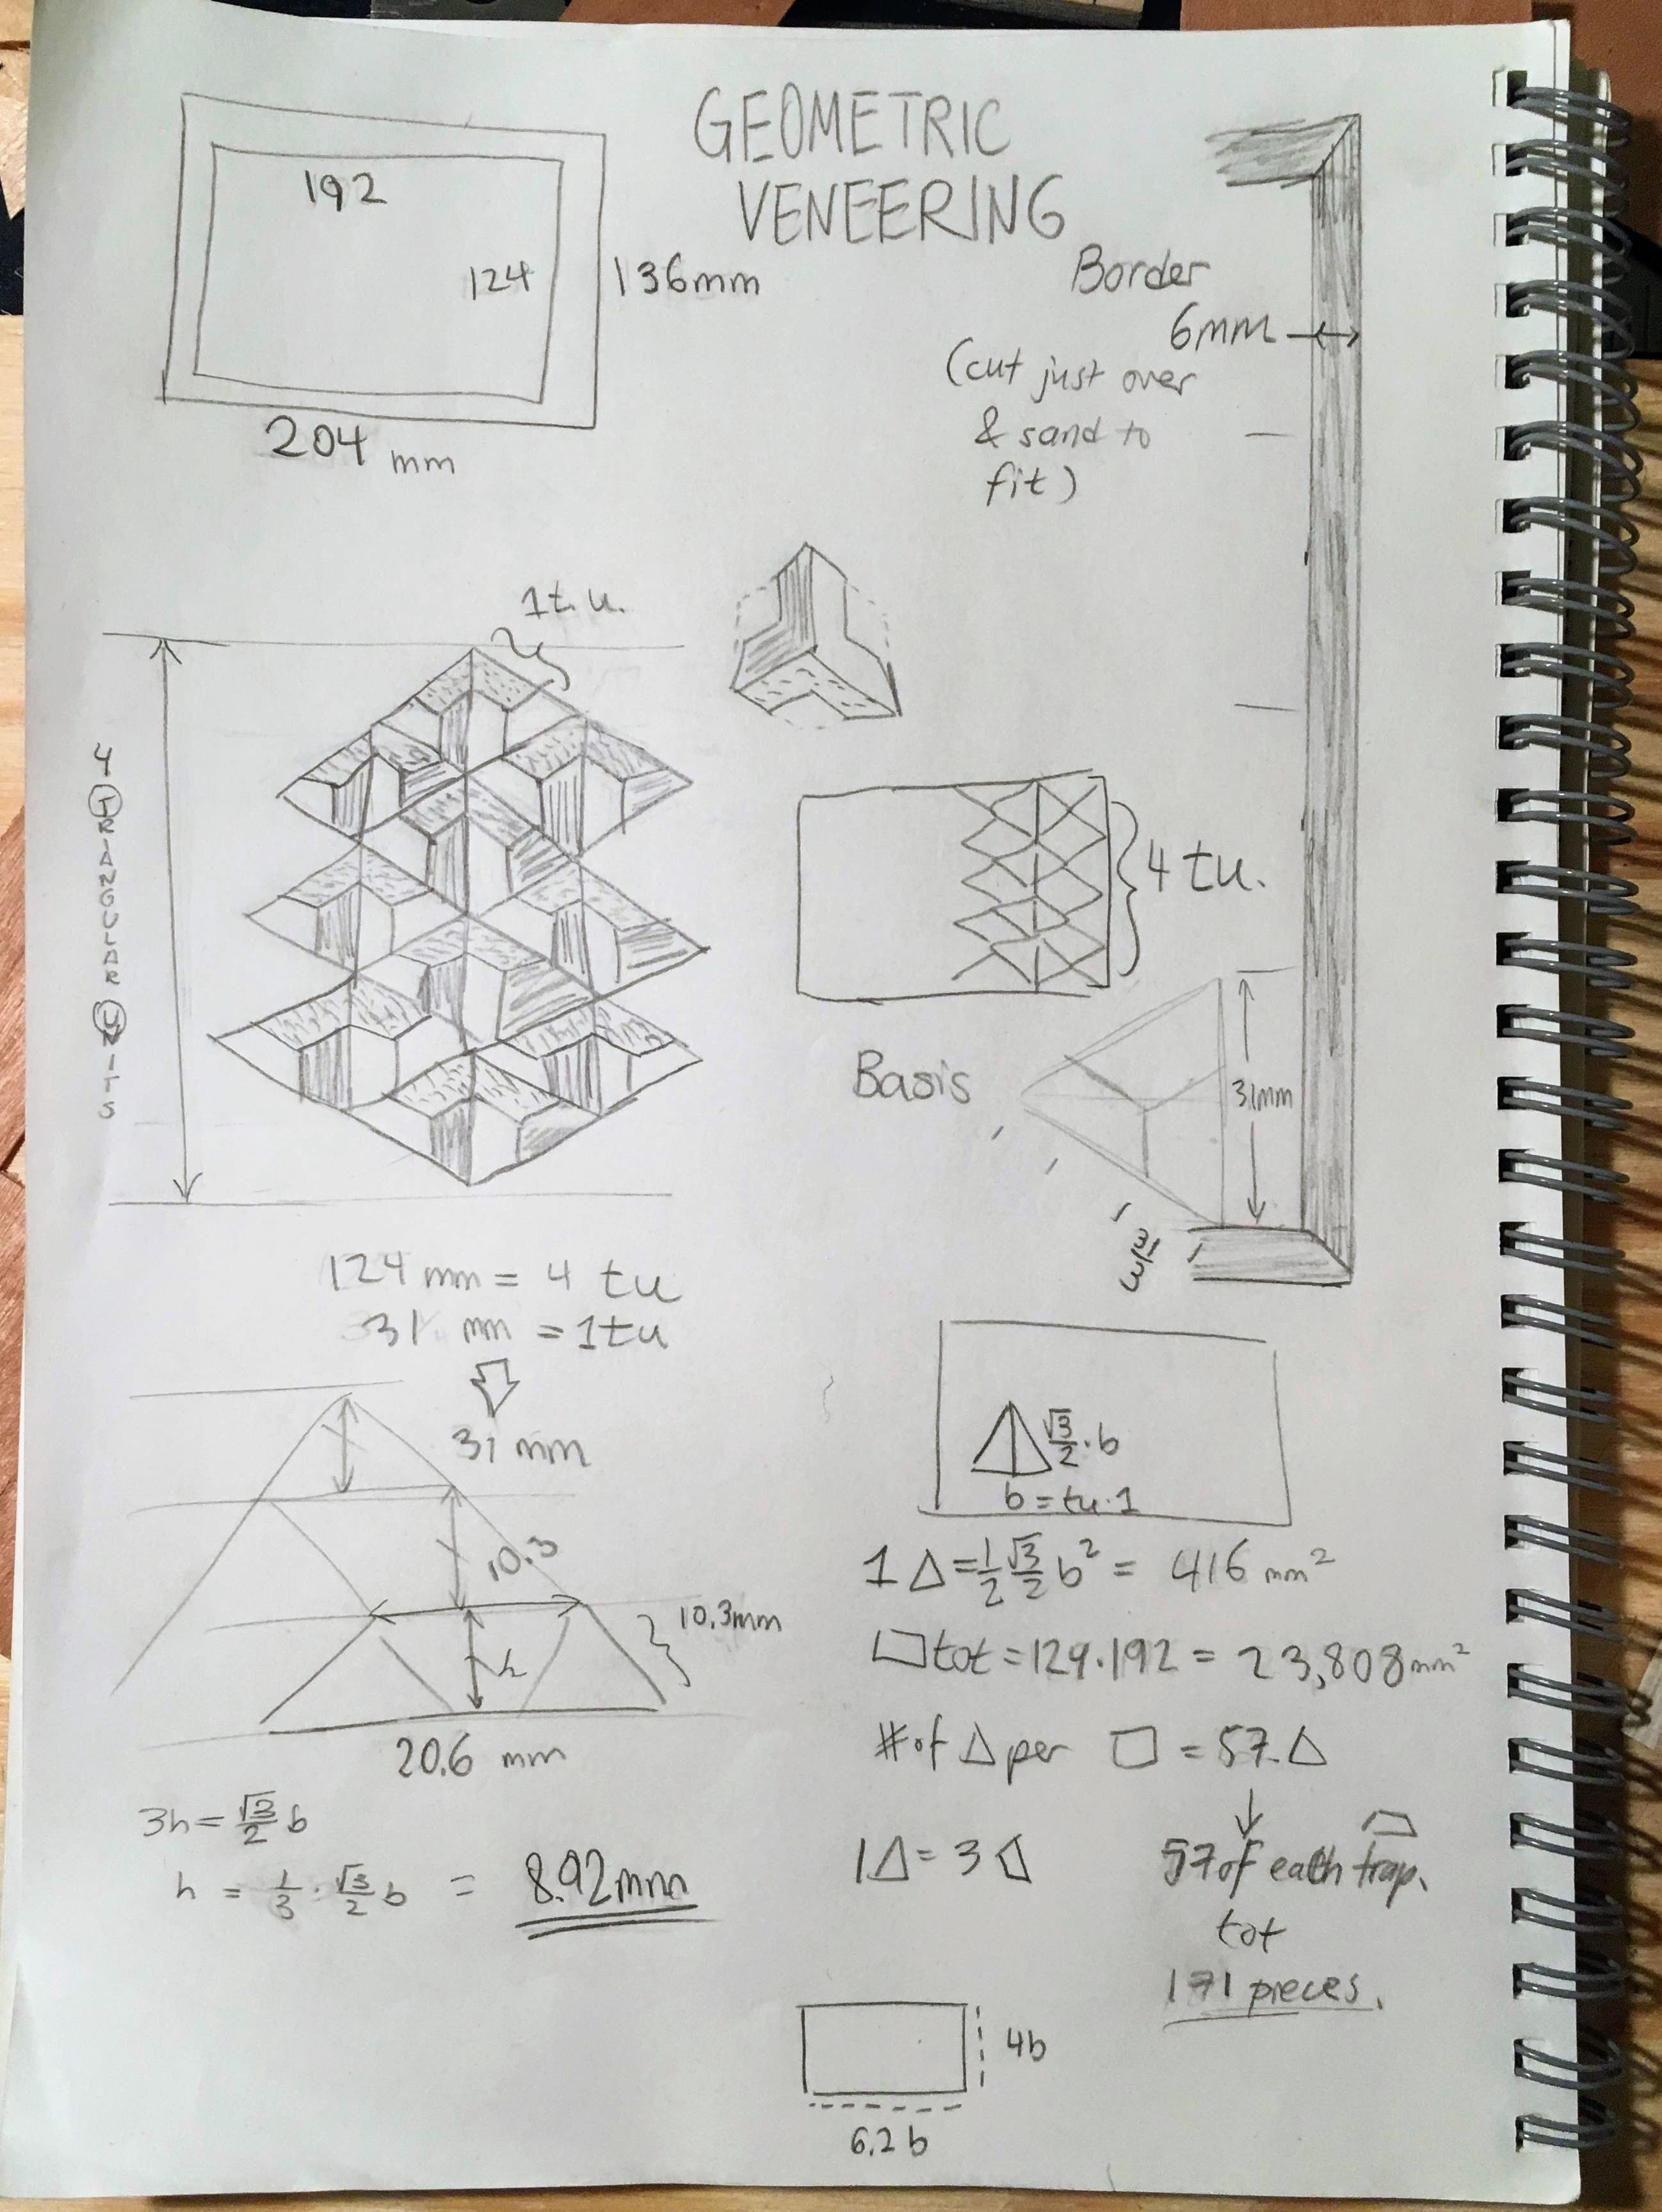 GEOMETRIC
VENEERING
192
124
136mm
204 mm
Border
6mm
(cut just over
& sand to
fit)
1t.u.
4 TRIANGULAR UNITS
4 tu.
Basis
31mm
124 mm = 4 tu
31 mm = 1tu
31 mm
10.3
h
10.3mm
20.6 mm
3h = √3/2 b
h = 1/3 · √3/2 b = 8.92mm
√3/2 · b
b = tu·1
1 △ = 1/2 √3/2 b² = 416 mm²
▱tot = 124·192 = 23,808mm²
# of △ per □ = 57 △
1△ = 3
57 of each trap.
tot
171 pieces.
4b
6.2 b